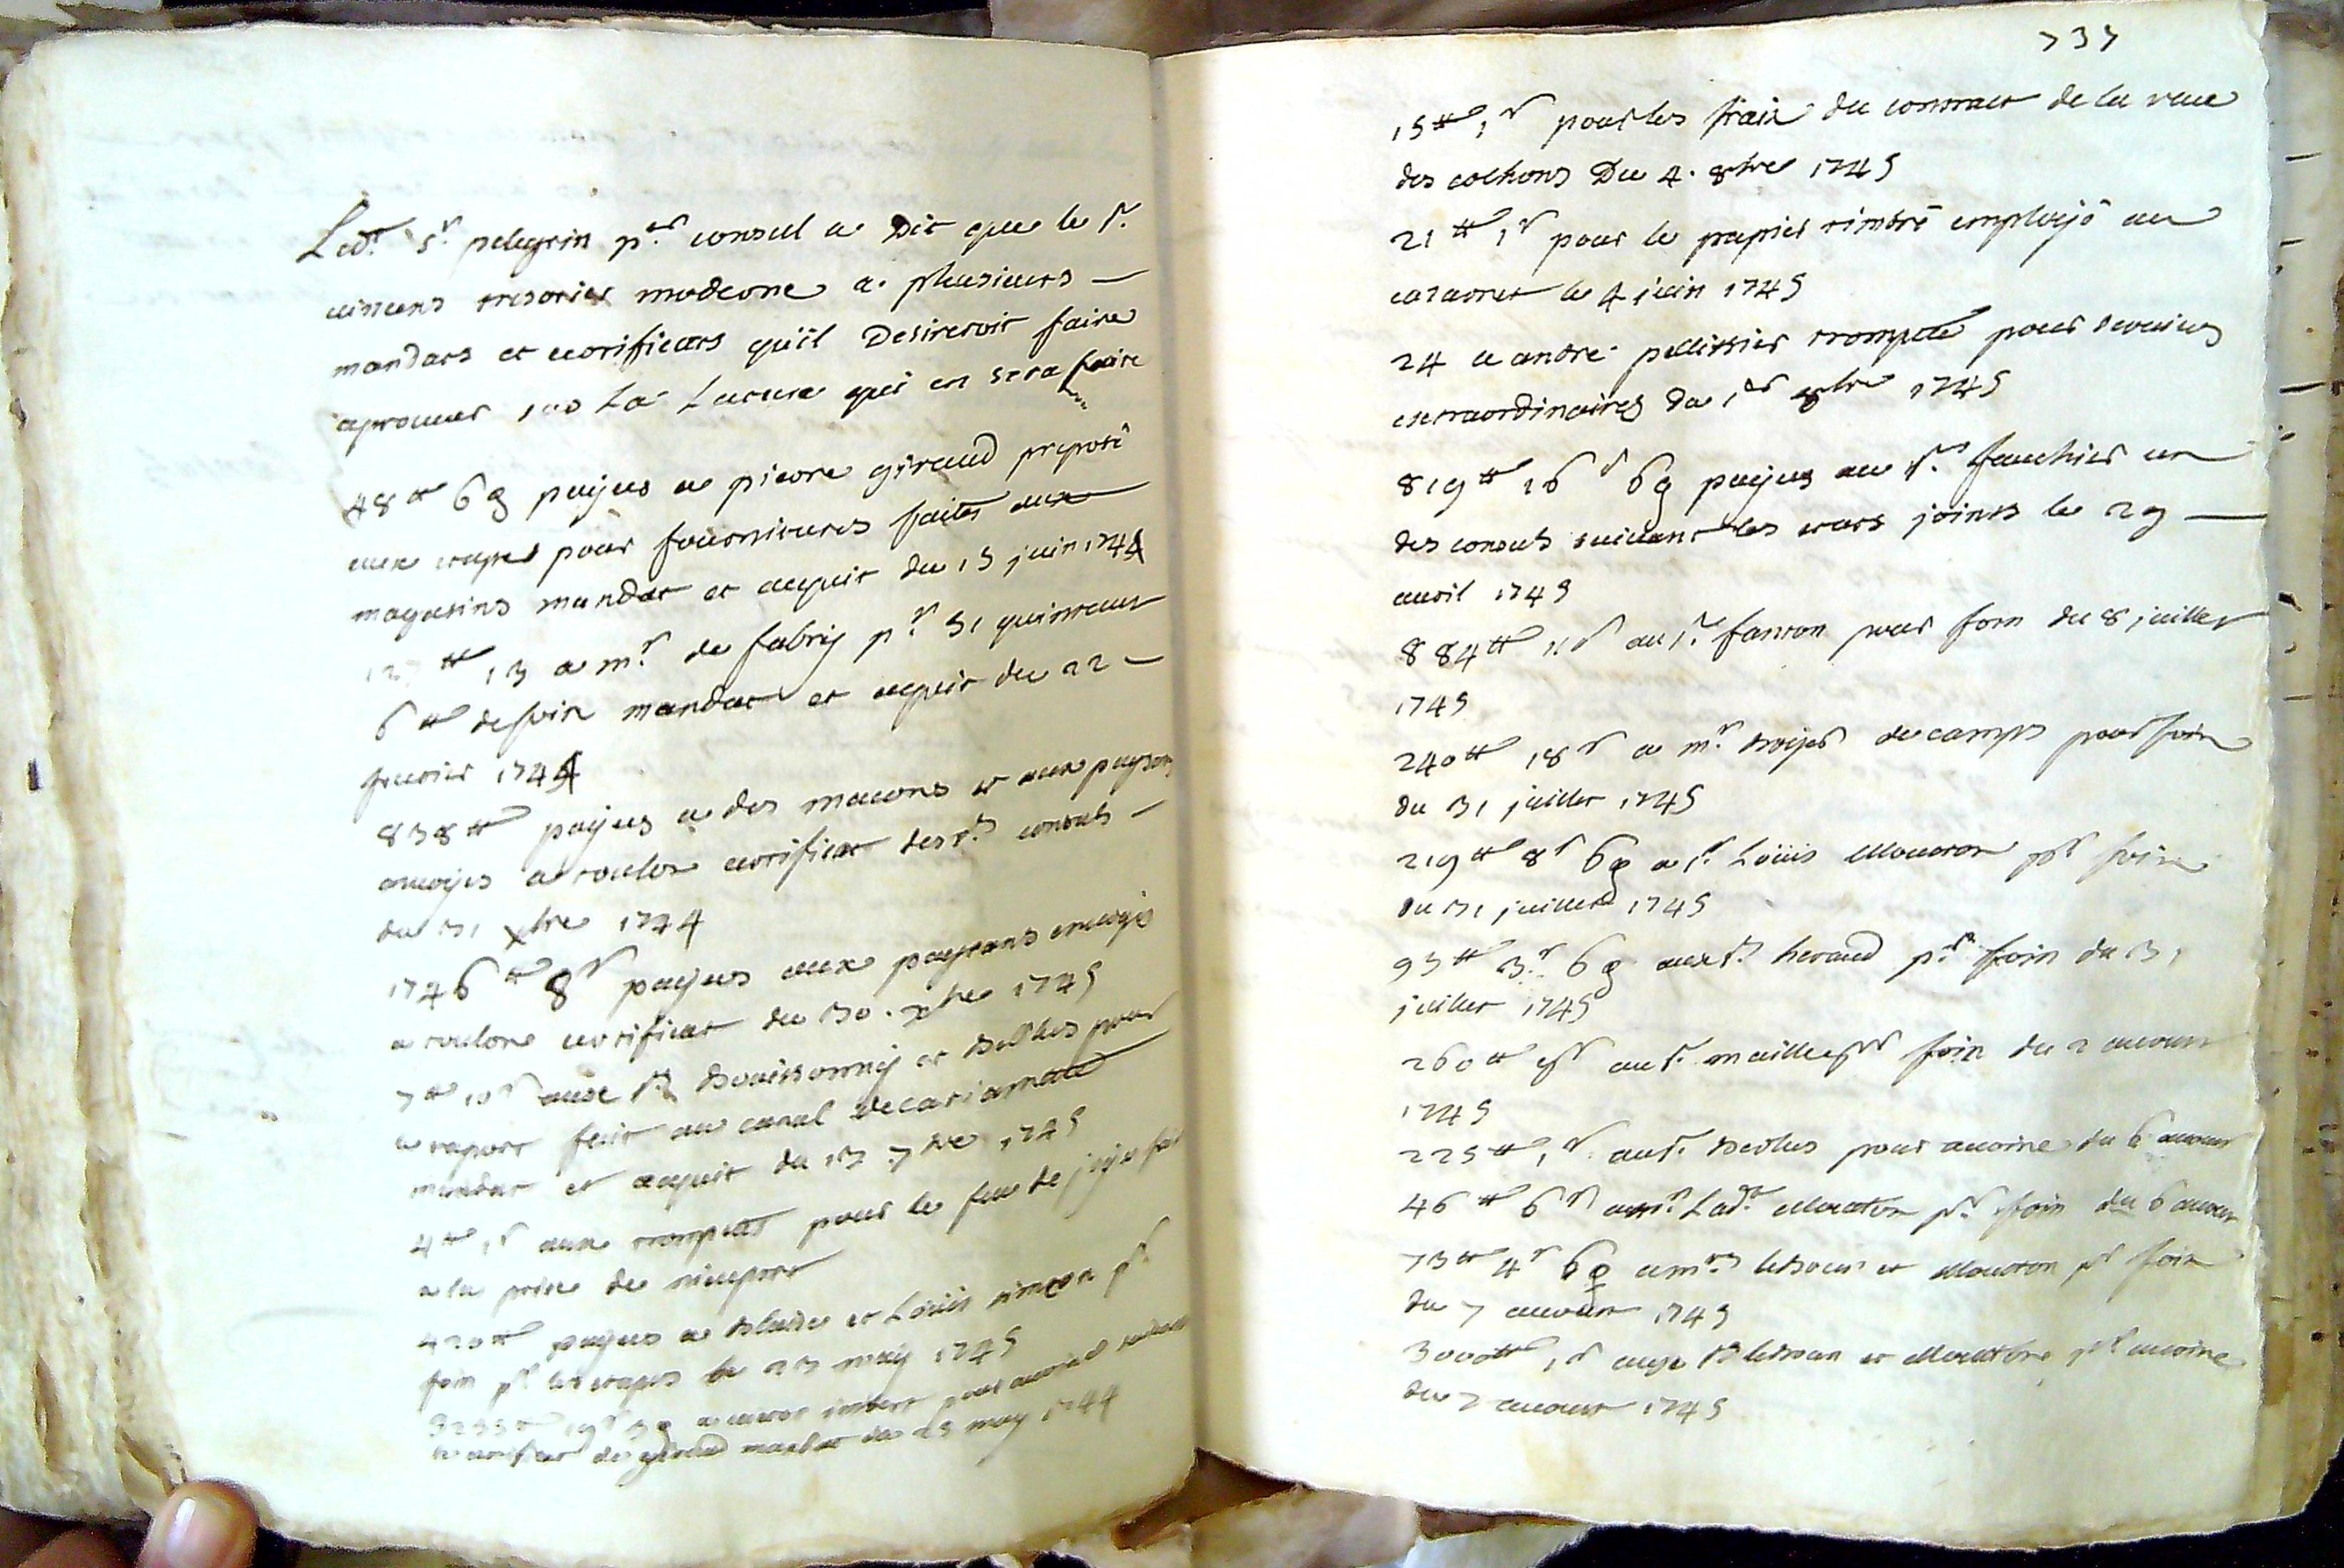 Led.t S.r pelegrin p.er consul a Dit que le S.r
vincens tresorier moderne a plusieurs —
mandats et certificats qu'il Desireroit faire
aprouver sur La Lecture qui en sera faire
48 ₶ 6 d payés a pierre giraud preposé
aux etapes pour fournitures faites aux
magasins mandat et acquit du 15 juin 1744
₶ 13 a m.r de fabry p.r 31 quintaux
6 ₶ de foin mandat et acquit du 22 —
feuvrier 1744
838 ₶ payés a des macons et aux paysans
envoyés a toulon certificat des S.rs consuls —
du 31 xbre 1744
1746 ₶ 8 s payés aux paysans envoyés
a toulon certificat du 30. xbre 1745
7 ₶ 10 s aux S.rs Bouissonny et pour
raport fait au canal decariamate
mandat et acquit du 13 7bre 1745
4 ₶ 1 s aux trompetes pour le feu de joye fait
a la prise de nieuport
420 ₶ payés a Blaise et Louis simeon p.r
foin p.r les etapes le 23 may 1745
19 s 3 d imbert pour
le certificat de giraud mandat du 25 may 1744
737
15 ₶ 1 s pour les fraix du contract de la rente
des cochons Du 4. 8bre 1745
21 ₶ 1 s pour le papier timbré employé au
cazernet le 4 juin 1745
24 a andré pellissier trompete pour services
extraordinaires du 1er 8bre 1745
819 ₶ 16 s 6 d payés au S.r fauchier un
des consuls suivant les etats joints le 29 —
avril 1745
884 ₶ 11 s au S.r fanton pour foin du 8 juillet
1745
240 ₶ 18 s a m.r Boyer decamps pour foin
du 31 juillet 1745
219 ₶ 8 s 6 d a S.r Louis Mouton p.r foin
du 31 juillet 1745
93 ₶ 3 s 6 d aux S.rs heraud p.r foin du 31
juillet 1745
260 ₶ au S.r maille p.r foin du 2 aoust
1745
225 ₶ 1 s au S.r pour avoine du 6 aoust
46 ₶ 6 s Lad.e Mouton p.r foin du 6 aoust
73 ₶ 4 s 6 d a m.rs et Mouton p.r foin
du 7 aoust 1745
3000 ₶ 1 s aux S.rs et Moutton p.r avoine
du 7 aoust 1745